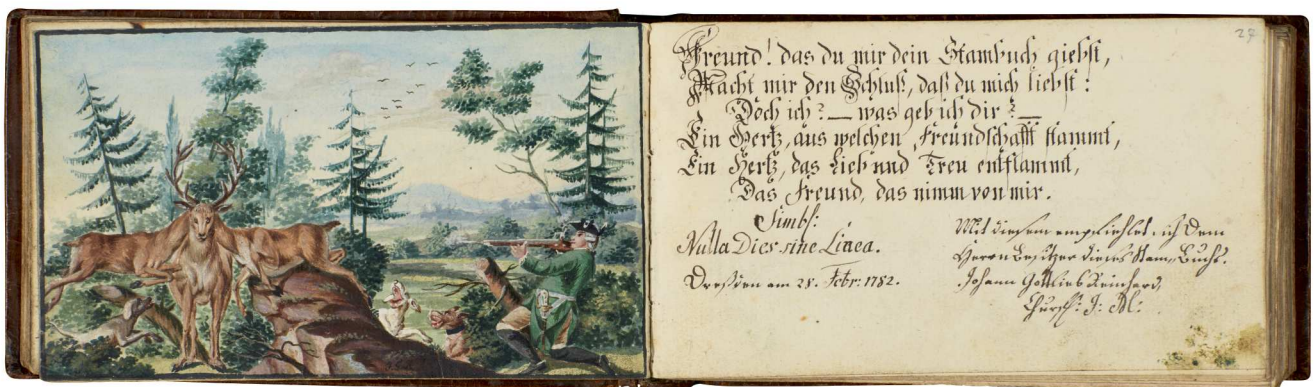 27
Freund! das du mir dein Stambuch giebst,
Macht mir den Schluß, daß du mich liebst:
Doch ich? — was geb ich dir? —
Ein Hertz, aus welchen Freundschafft stammt,
Ein Hertz, das Lieb und Treu entflammt,
Das Freund, das nimm von mir.
Simb:
Nulla Dies sine Linea.
Dresden am 28. Febr: 1782.
Mit diesem empfiehlet sich dem
Herrn Besitzer dieses Stam-Buchs.
Johann Gottlieb Reinhard,
Churfl: J: